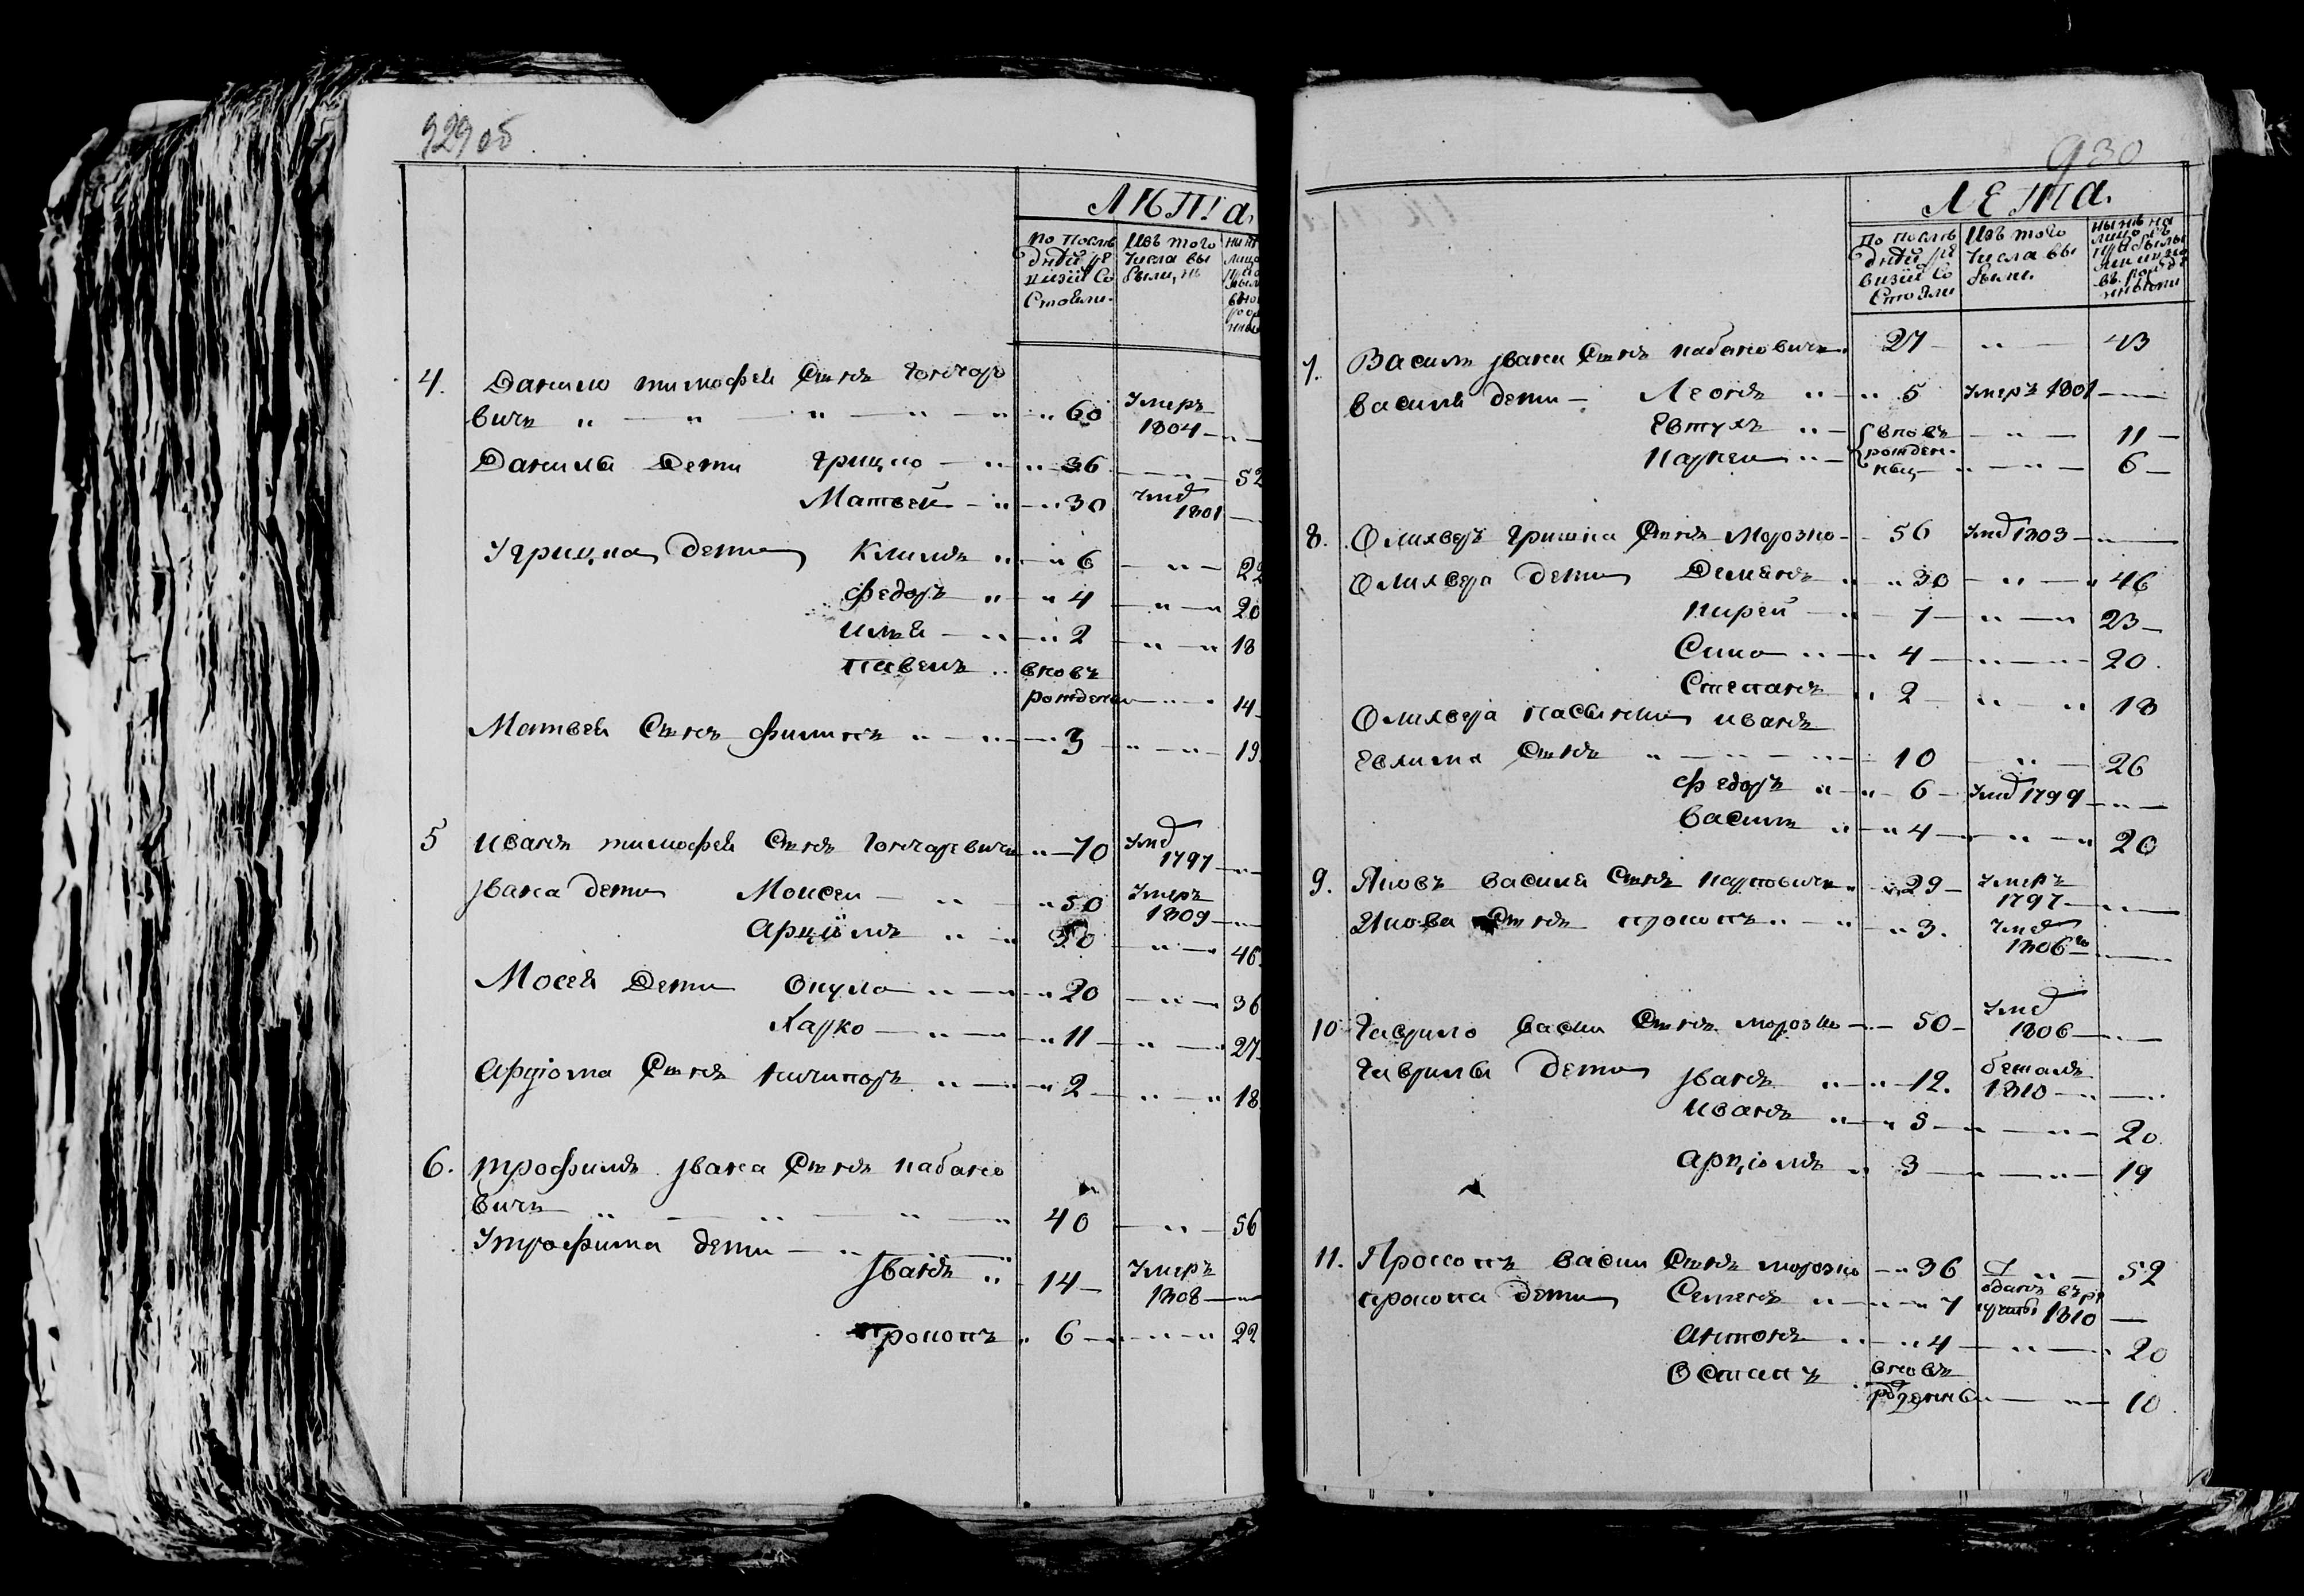 929 об
ЛѢТ!а.
По послѣ
дней ре
визiи Со
Стояли.
Изъ того
числа вы
были,
4. Данило тимофея Сынъ гончаро
вичъ 60 Умеръ
1804
Данилы Дети грицко 36 52
Матвей 30 умр
1801
У грицка дети Климъ 6 22
федоръ 4 20
илья 2 18
павелъ вновъ
рожденъ 14
Матвея Сынъ филипъ 3 19
5 иванъ тимофея Сынъ гончаревичъ 70 умр
1797
Jвана дети Моисей 50 Умеръ
1809
Арцiомъ 30 46
Мосея Дети Окула 20 36
Харко 11 27
Арцiома Сынъ ничипоръ 2 18
6. трофимъ Jвана Сынъ кабано
вичъ 40 56
У трофима дети
Jванъ 14 Умеръ
1808
прокопъ 6 22
930
ЛЕТА.
По послѣ
дней ре
визiи Со
Стояли
Изъ того
числа вы
были.
нынѣ на
лицо съ
7. Василь Jвана Сынъ кабановичъ 27 43
Василя дети Леонъ 5 Умеръ 1801
Евтухъ вновъ 11
карпей рожден-
ныи 6
8. Олихверъ гришка Сынъ Морозко 56 Умр 1803
Олихвера дети Демянъ 30 46
кирей 7 23
Сико 4 20.
Степанъ 2 18
Олихвера пасынки иванъ
Евхима Сынъ 10 26
федоръ 6 Умр 1799
Василь 4 20
9. Яковъ василя Сынъ карповичъ 29 Умеръ
1797
Якова Сынъ прокопъ 3. Умр
1806го
10 гаврило Васи Сынъ морозко 50 Умр
1806
гаврилы Дети Jванъ 12. бежалъ
1810
иванъ 5 20
Арцiомъ 3 19
11. Прокопъ васи Сынъ морозко 36 52
прокопа дети Семенъ 7 одатъ въ ре
круты 1810
Антонъ 4 20
Остапъ вновъ
рожденны 10